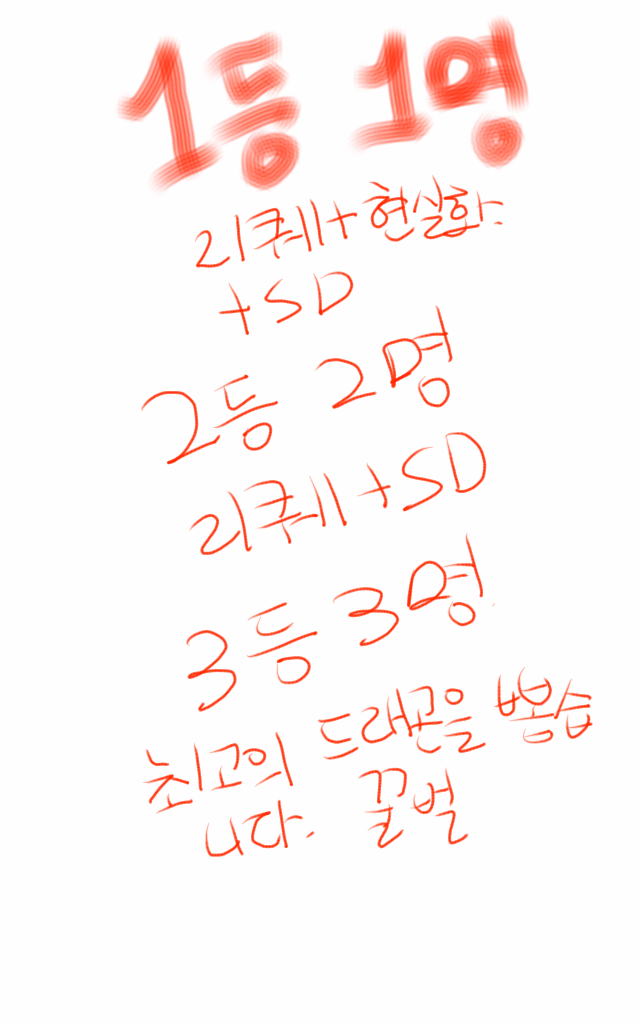 1등 1명
리퀘+현실화
+SD
2등 2명
리퀘+SD
3등 3명
최고의 드래곤을 뽕습
니다. 꿀벌